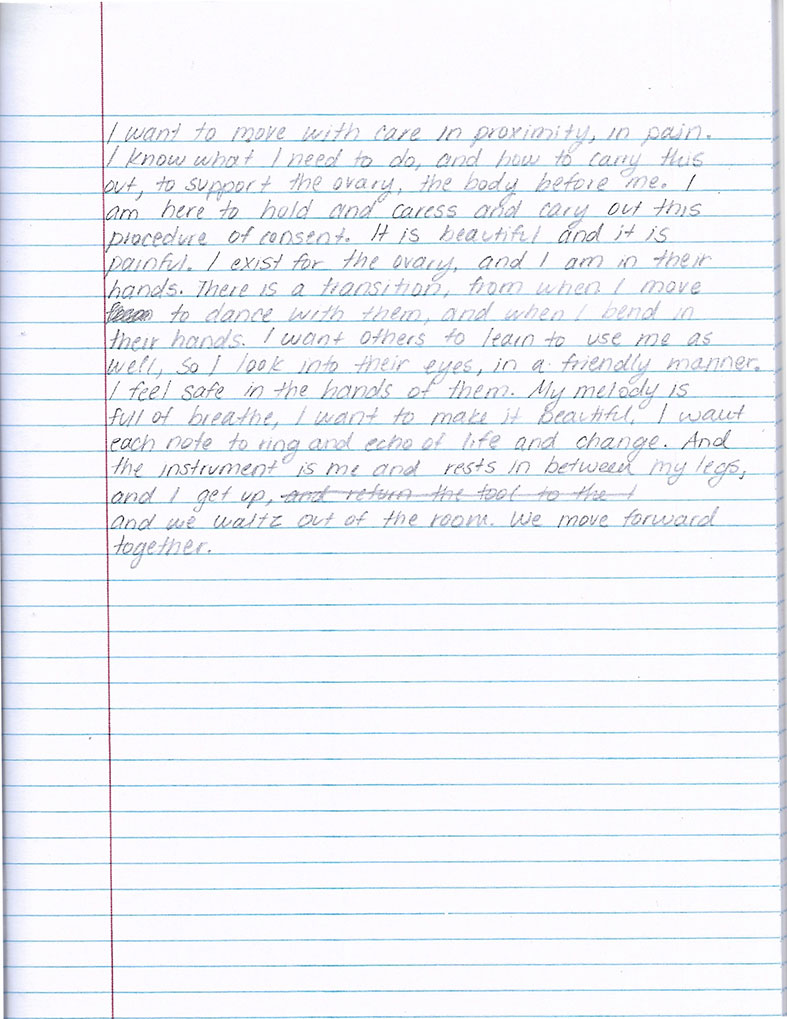 I want to move with care in proximity, in pain.
I know what I need to do, and how to carry this
out, to support the ovary, the body before me. I
am here to hold and caress and cary out this
procedure of consent. It is beautiful and it is
painful. I exist for the ovary, and I am in their
hands. There is a transition, from when I move
to dance with them, and when I bend in
their hands. I want others to learn to use me as
well, so I look into their eyes, in a friendly manner.
I feel safe in the hands of them. My melody is
full of breathe, I want to make it beautiful. I want
each note to ring and echo of life and change. And
the instrument is me and rests in between my legs,
and I get up, and return the tool to the t
and we waltz out of the room. We move forward
together.